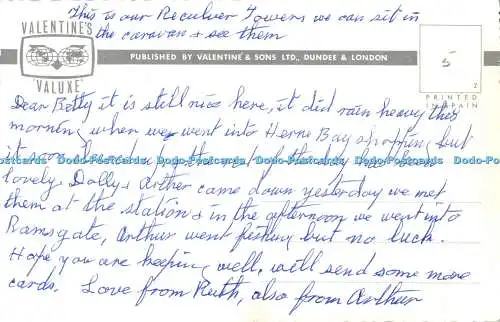 This is our Reculver Towers we can sit in
the caravan & see them
VALENTINE'S
"VALUXE"
PUBLISHED BY VALENTINE & SONS LTD., DUNDEE & LONDON
5
2
PRINTED
IN SPAIN
Dear Betty it is still nice here, it did rain heavy this
morning when we went into Herne Bay shopping but
it soon cleared up the rest of the day has been
Dodo-Postcards Dodo-Postcards Dodo-Postcards Dodo-Postcards Dodo-Postcards Dodo-Postcards
lovely. Dolly & Arthur came down yesterday we met
them at the station & in the afternoon we went into
Ramsgate, Arthur went fishing but no luck.
Hope you are keeping well, will send some more
cards. Love from Ruth, also from Arthur